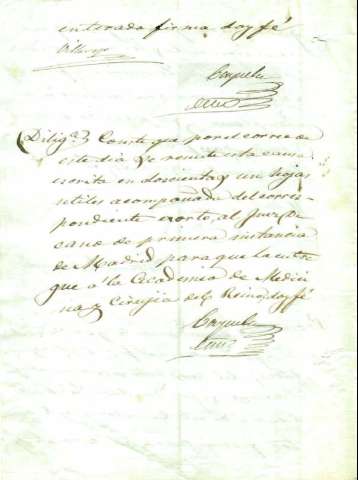 enterado firma doy fé
Villarroya
Cazuela
Dilig.ª) Conste que por el correo de
este dia se remite esta causa
escrita en doscientas y un hojas
utiles acompañada del corres-
pondiente exorto, al Juez De-
cano de primera instancia
de Madrid para que la entre
gue a la Academia de Medici
na y Cirujia del Reino, doy fé
Cazuela